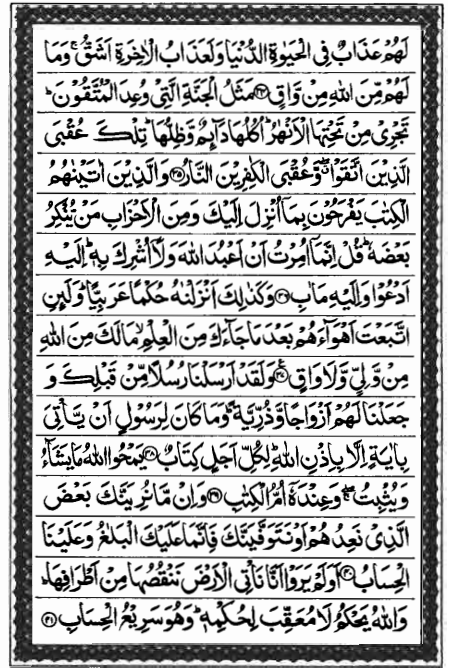 لَهُمْ عَذَابٌ فِى الْحَيٰوةِ الدُّنْيَا وَلَعَذَابُ الْاٰخِرَةِ اَشَقُّ ۚ وَمَا
لَهُمْ مِّنَ اللّٰهِ مِنْ وَّاقٍ ﴿۳۴﴾ مَثَلُ الْجَنَّةِ الَّتِىْ وُعِدَ الْمُتَّقُوْنَ ؕ
تَجْرِىْ مِنْ تَحْتِهَا الْاَنْهٰرُ ؕ اُكُلُهَا دَآئِمٌ وَّظِلُّهَا ؕ تِلْكَ عُقْبَى
الَّذِيْنَ اتَّقَوْا ۖ وَّعُقْبَى الْكٰفِرِيْنَ النَّارُ ﴿۳۵﴾ وَالَّذِيْنَ اٰتَيْنٰهُمُ
الْكِتٰبَ يَفْرَحُوْنَ بِمَآ اُنْزِلَ اِلَيْكَ وَمِنَ الْاَحْزَابِ مَنْ يُّنْكِرُ
بَعْضَهٗ ؕ قُلْ اِنَّمَآ اُمِرْتُ اَنْ اَعْبُدَ اللّٰهَ وَلَآ اُشْرِكَ بِهٖ ؕ اِلَيْهِ
اَدْعُوْا وَاِلَيْهِ مَاٰبِ ﴿۳۶﴾ وَكَذٰلِكَ اَنْزَلْنٰهُ حُكْمًا عَرَبِيًّا ؕ وَلَئِنِ
اتَّبَعْتَ اَهْوَآءَهُمْ بَعْدَ مَا جَآءَكَ مِنَ الْعِلْمِ ۙ مَا لَكَ مِنَ اللّٰهِ
مِنْ وَّلِىٍّ وَّلَا وَاقٍ ﴿۳۷﴾ وَلَقَدْ اَرْسَلْنَا رُسُلًا مِّنْ قَبْلِكَ وَ
جَعَلْنَا لَهُمْ اَزْوَاجًا وَّذُرِّيَّةً ؕ وَمَا كَانَ لِرَسُوْلٍ اَنْ يَّاْتِىَ
بِاٰيَةٍ اِلَّا بِاِذْنِ اللّٰهِ ؕ لِكُلِّ اَجَلٍ كِتَابٌ ﴿۳۸﴾ يَمْحُوا اللّٰهُ مَا يَشَآءُ
وَيُثْبِتُ ۖ وَعِنْدَهٗٓ اُمُّ الْكِتٰبِ ﴿۳۹﴾ وَاِنْ مَّا نُرِيَنَّكَ بَعْضَ
الَّذِىْ نَعِدُهُمْ اَوْ نَتَوَفَّيَنَّكَ فَاِنَّمَا عَلَيْكَ الْبَلٰغُ وَعَلَيْنَا
الْحِسَابُ ﴿۴۰﴾ اَوَلَمْ يَرَوْا اَنَّا نَاْتِى الْاَرْضَ نَنْقُصُهَا مِنْ اَطْرَافِهَا ؕ
وَاللّٰهُ يَحْكُمُ لَا مُعَقِّبَ لِحُكْمِهٖ ؕ وَهُوَ سَرِيْعُ الْحِسَابِ ﴿۴۱﴾